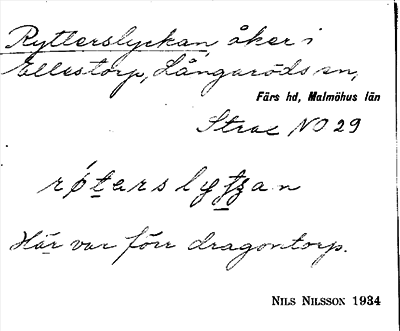 Rytterslyckan, åker i
Ellestorp, Långaröds sn,
Färs hd, Malmöhus län
NO 29
Här var förr dragontorp.
NILS NILSSON 1934